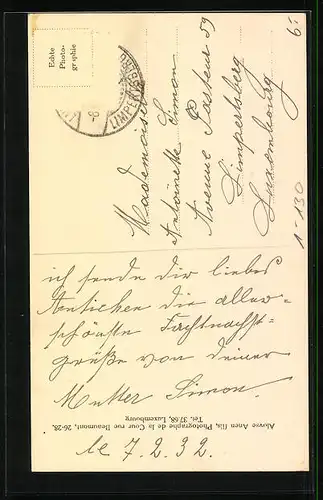 Echte
Photo-
graphie
LIMPERTSBERG
6.-
1-130
Mademoiselle
Antoinette Simon
Avenue Pasteur 59
Limpertsberg
Luxembourg
ich sende dir liebes
Antichen die aller-
schönste Fachtnachts-
grüße von deiner
Mutter Simon.
le 7.2.32.
Aloyse Anen fils, Photographe de la Cour rue Beaumont, 26-28,
Tel. 37.68, Luxembourg